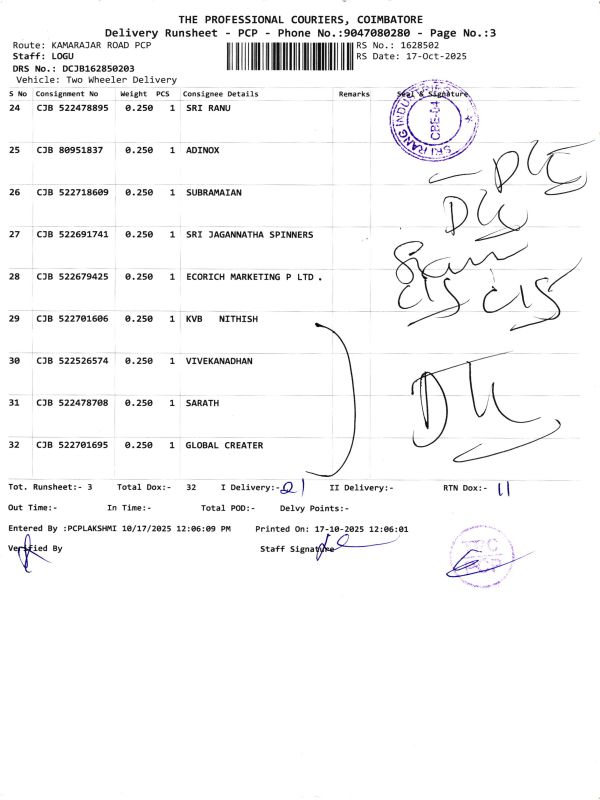 THE PROFESSIONAL COURIERS, COIMBATORE
Delivery Runsheet - PCP - Phone No.:9047080280 - Page No.:3
Route: KAMARAJAR ROAD PCP RS No.: 1628502
Staff: LOGU RS Date: 17-Oct-2025
DRS No.: DCJB162850203
Vehicle: Two Wheeler Delivery
S No Consignment No Weight PCS Consignee Details Remarks Seal & Signature
24 CJB 522478895 0.250 1 SRI RANU
SRI RANG INDUSTRIES CBE-04
25 CJB 80951837 0.250 1 ADINOX
26 CJB 522718609 0.250 1 SUBRAMAIAN
27 CJB 522691741 0.250 1 SRI JAGANNATHA SPINNERS
28 CJB 522679425 0.250 1 ECORICH MARKETING P LTD .
29 CJB 522701606 0.250 1 KVB NITHISH
30 CJB 522526574 0.250 1 VIVEKANADHAN
31 CJB 522478708 0.250 1 SARATH
32 CJB 522701695 0.250 1 GLOBAL CREATER
Tot. Runsheet:- 3 Total Dox:- 32 I Delivery:- 21 II Delivery:- RTN Dox:- 11
Out Time:- In Time:- Total POD:- Delvy Points:-
Entered By :PCPLAKSHMI 10/17/2025 12:06:09 PM Printed On: 17-10-2025 12:06:01
Verified By Staff Signature